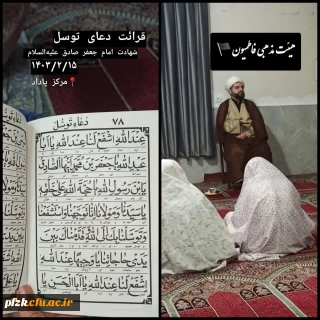 قرائت دعای توسل
شهادت امام جعفر صادق علیه‌السلام
۱۴۰۳/۲/۱۵
مرکز یاداد
هیئت مذهبی فاطمیون
دُعَاءِ تَوَسُّل
۷۸
عِنْدَاللّٰهِ اِشْفَعْ لَنَا عِنْدَاللّٰهِ يَا اَبَا
عَبْدِاللّٰهِ يَا جَعْفَرَ بْنَ مُحَمَّدٍ اَيُّهَا الصَّادِقُ
يَا بْنَ رَسُولِ اللّٰهِ يَا حُجَّةَ اللّٰهِ عَلٰى خَلْقِهِ
يَا سَيِّدَنَا وَمَوْلٰينَا اِنَّا تَوَجَّهْنَا وَاسْتَشْفَعْنَا
وَتَوَسَّلْنَا بِكَ اِلَى اللّٰهِ وَقَدَّمْنَاكَ بَيْنَ
يَدَىْ حَاجَاتِنَا يَا وَجِيهًا عِنْدَاللّٰهِ
اِشْفَعْ لَنَا عِنْدَاللّٰهِ يَا اَبَا الْحَسَنِ يَا
pfzk.cfu.ac.ir